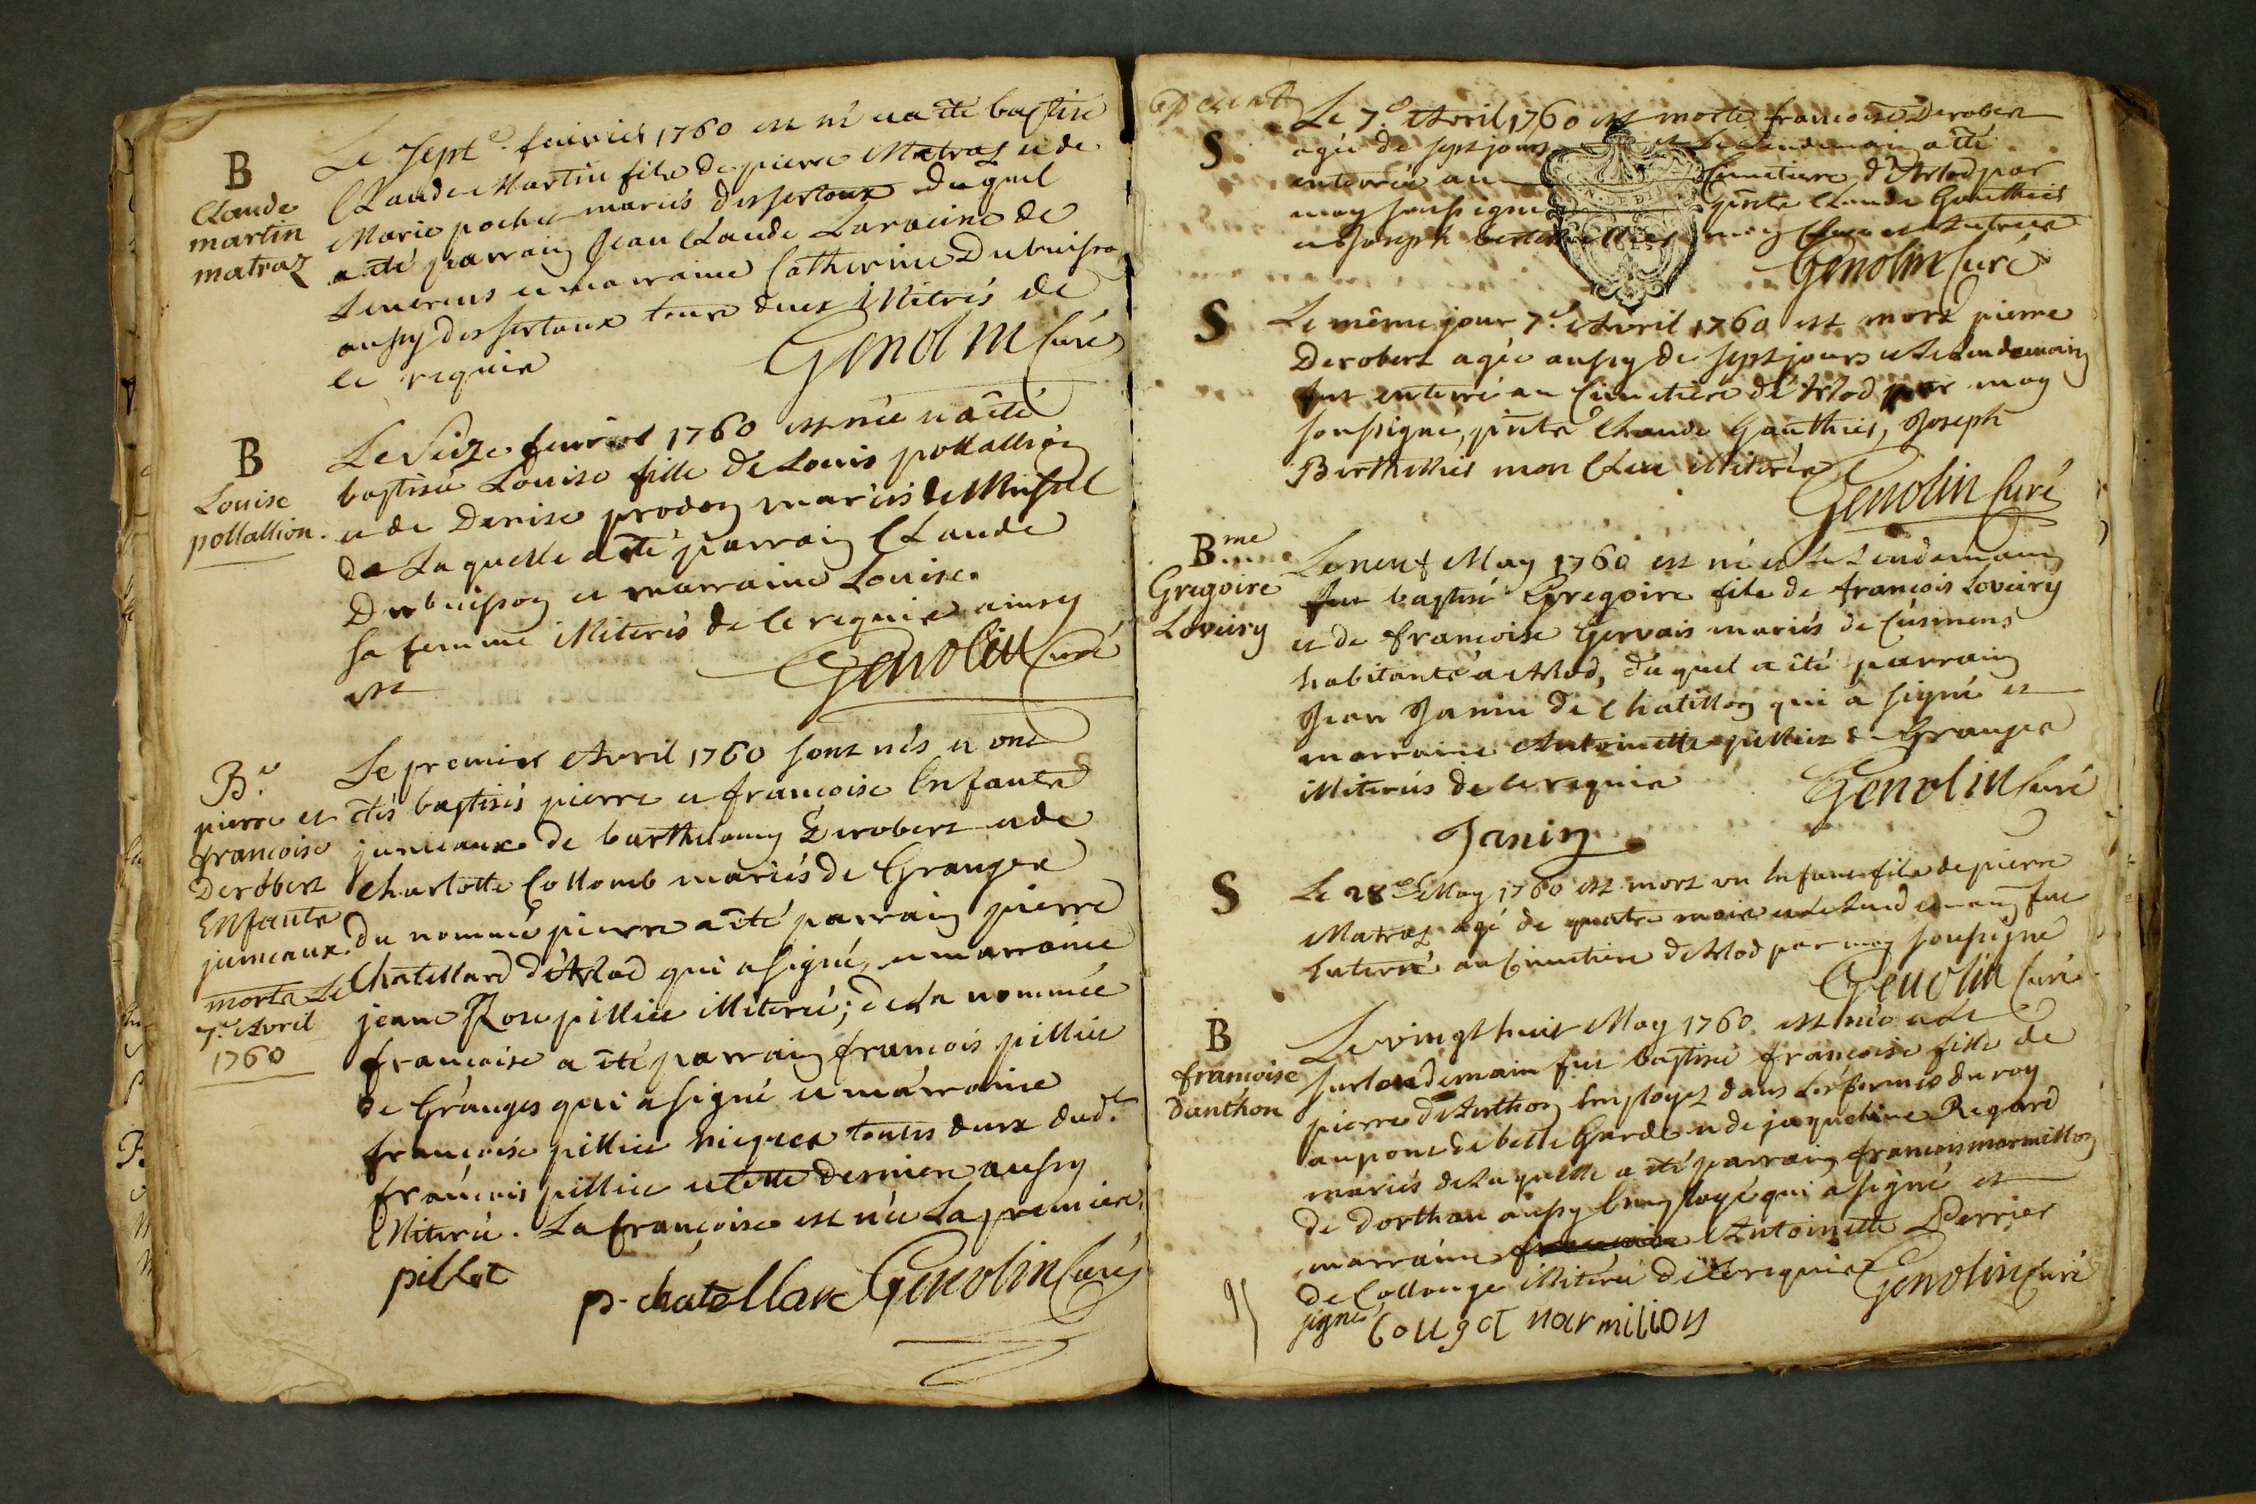 B
Claude
martin
matraz
Le sept.e feuvrier 1760 est né et a été baptisé
Claude Martin fils de pierre Matraz et de
Marie pochet mariés des sertoux duquel
a été parrain Jean Claude Laracine de
et marraine Catherine Dubuisson
aussy des sertoux tous deux illiterés de
ce requis
Genolin Curé
B
Louise
pollallion.
Le Seize feuvrier 1760 est née et a été
baptisée Louise fille de Louis pollallion
et de Denise prodon mariés de Mussel
de Laquelle a été parrain Claude
Dubuisson et marraine Louise
sa femme illiterés de ce requis ainsy
est
Genolin Curé
B.e
pierre et
francoise
Derobert
Enfants
jumeaux.
morts Le
7.e Avril
1760
Le premier Avril 1760 sont nés et ont
étés baptisés pierre et francoise Enfants
jumeaux de barthelomy Derobert et de
Charlotte Collomb mariés de Granges
du nommé pierre a été parrain pierre
Chatellard d'Arlod qui a signé, et marraine
jeane Rose pillier illiterée; de La nommée
francoise a été parrain francois pillier
de Granges qui a signé et marraine
françoise pillier niepces toutes deux dud.t
françois pillier et cette derniere aussy
illiterée. La françoise est née La premiere.
pillet
p. chatellare
Genolin Curé
S
Le 7.e Avril 1760 est morte francoise Derobert
agée de sept jours et Le Lendemain a été
enterrée au Cimetiere d'Arlod par
moy soussigne pnts Claude Gauthier
et Joseph berthillier mon Clerc
Genolin Curé
S
Le même jour 7.e Avril 1760 est mort pierre
Derobert agée aussy de sept jours et Le Lendemain
fut enterré au Cimetiere d'Arlod par moy
soussigne, pnts Claude Gauthier, Joseph
Berthillier mon Clerc illiterés
Genolin Curé
B.me
Gregoire
Loveiry
Le neuf May 1760 est né et Le Lendemain
fut baptisé Gregoire fils de francois Loveiry
et de francoise Gervais mariés de Cusinens
habitants a Arlod, duquel a été parrain
Jean Janin de Chatillon qui a signé et
marraine Antoinette pillier de Granges
illiterés de ce requis
Genolin Curé
Janin
S
Le 28.e May 1760 est mort un Enfant fils de pierre
Matraz agé de quatre mois et Le Lendemain fut
Enterré au Cimetiere d'Arlod par moy soussigné
Genolin Curé
B
francoise
danthon
Le vingt huit May 1760 est née et Le
surlendemain fut baptisé françoise fille de
pierre d'Anthon Employez dans Les fermes du roy
au pont de belle Garde et de jaqueline Regard
mariés de Laquelle a été parrain francois marmillon
de dorthan aussy Employé qui a signé et
marraine Antoinette Perrier
de Collonge illiterée de ce requis
Genolin Curé
signé
Couget Marmilion